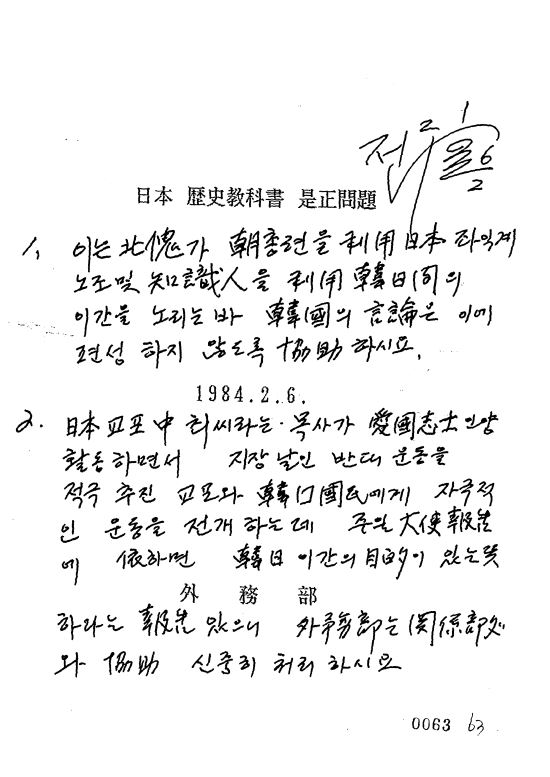 전
2/6
日本 歷史敎科書 是正問題
1. 이는 北傀가 朝총련을 利用 日本 좌익계
노조 및 知識人을 利用 韓日間의
이간을 노리는 바 韓國의 言論은 이에
편성 하지 않도록 協助 하시요.
1984.2.6.
2. 日本 교포 中 최씨라는 목사가 愛國志士인양
활동하면서 지장날인 반대 운동을
적극 추진 교포와 韓日國民에게 자극적
인 운동을 전개 하는데 주일大使報告
에 依하면 韓日 이간의 目的이 있는듯
外務部
하다는 報告 있으니 外務部는 関係部處
와 協助 신중히 처리 하시요
0063 63